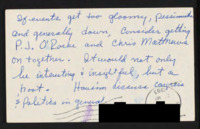 If events get too gloomy, pessimistic
and generally down, Consider getting
P.J. O'Rorke and Chris Matthews
on together. It would not only
be interesting & insightful, but a
hoot. Have'em discuss
& Politics in general